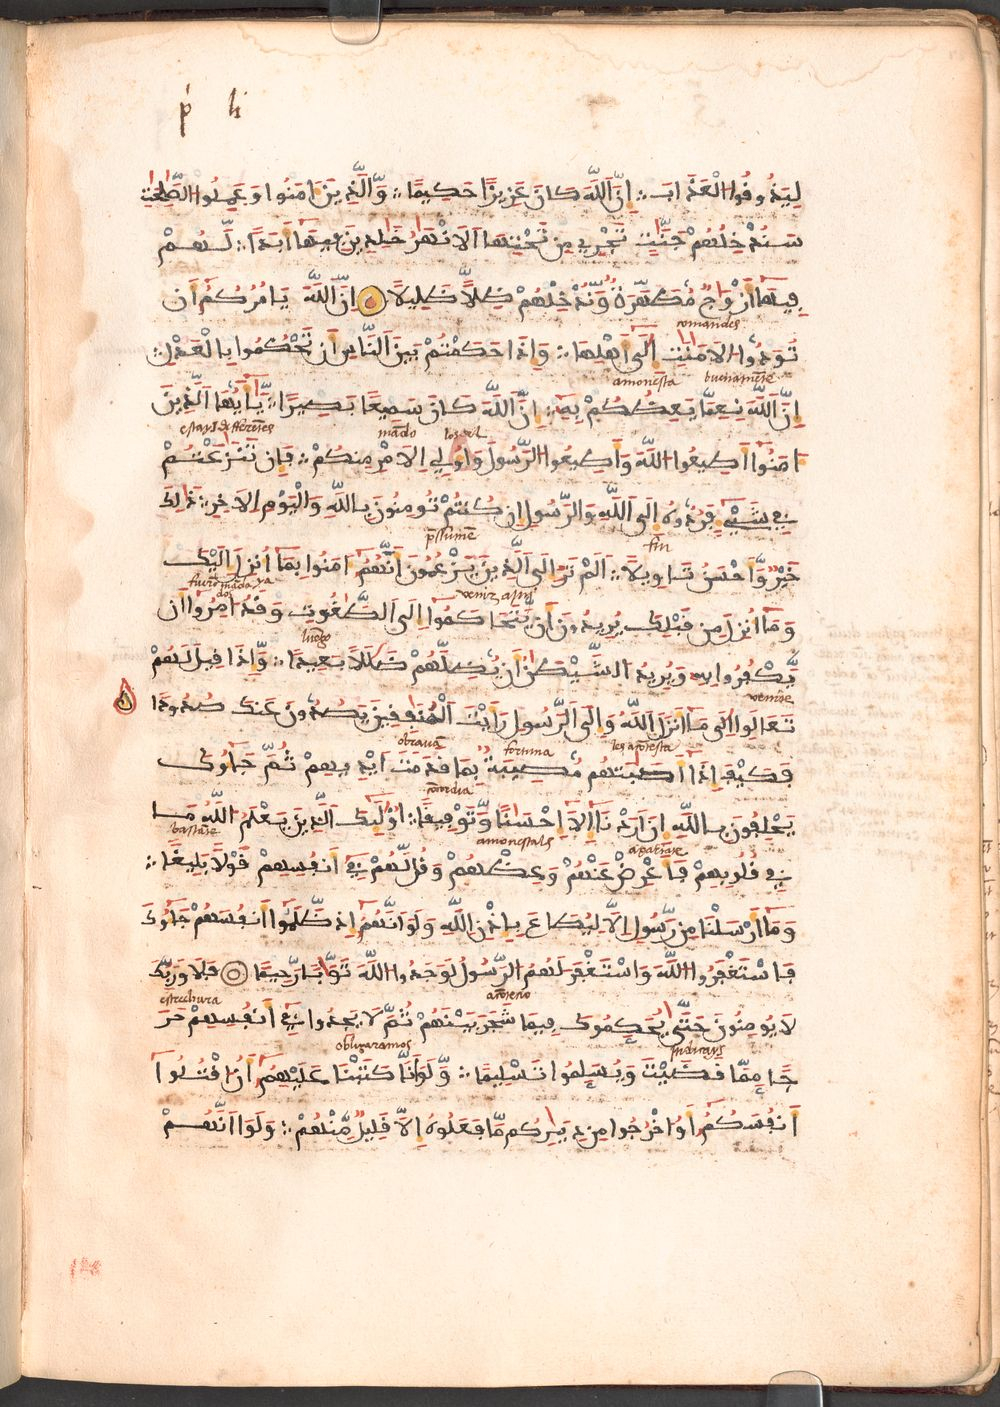 p li
لِيَذُوقُوا الْعَذَابَ ۞ إِنَّ اللَّهَ كَانَ عَزِيزًا حَكِيمًا ۞ وَّالَّذِينَ ءَامَنُوا وَعَمِلُوا الصَّٰلِحَٰتِ
سَنُدْخِلُهُمْ جَنَّٰتٍ تَجْرِي مِن تَحْتِهَا الَانْهَٰرُ خَٰلِدِينَ فِيهَا أَبَدًا ۞ لَّهُمْ
فِيهَا أَزْوَٰجٌ مُّطَهَّرَةٌ وَّنُدْخِلُهُمْ ظِلًّا ظَلِيلًا ۞ إِنَّ اللَّهَ يَامُرُكُمْ أَن
comandes
تُوَدُّوا الَامَٰنَٰتِ إِلَىٰ أَهْلِهَا ۞ وَإِذَا حَكَمْتُم بَيْنَ النَّاسِ أَن تَحْكُمُوا بِالْعَدْلِ ۞
amonesta buenamēte
إِنَّ اللَّهَ نِعِمَّا يَعِظُكُمْ بِهِ ۞ إِنَّ اللَّهَ كَانَ سَمِيعًا بَصِيرًا ۞ يَٰأَيُّهَا الَّذِينَ
estays differētes mādo
ءَامَنُوا أَطِيعُوا اللَّهَ وَأَطِيعُوا الرَّسُولَ وَأُوْلِي الَامْرِ مِنكُمْ ۞ فَإِن تَنَٰزَعْتُمْ
فِي شَيْءٍ فَرُدُّوهُ إِلَى اللَّهِ وَالرَّسُولِ إِن كُنتُمْ تُومِنُونَ بِاللَّهِ وَالْيَوْمِ الَاخِرِ ۞ ذَٰلِكَ
p̄sumē fin
خَيْرٌ وَّأَحْسَنُ تَاوِيلًا ۞ أَلَمْ تَرَ إِلَى الَّذِينَ يَزْعُمُونَ أَنَّهُمْ ءَامَنُوا بِمَا أُنزِلَ إِلَيْكَ
fuirō mādados ya venir a
وَمَا أُنزِلَ مِن قَبْلِكَ يُرِيدُونَ أَن يَّتَحَاكَمُوا إِلَى الطَّٰغُوتِ وَقَدُ امِرُوا أَن
luego
يَّكْفُرُوا بِهِ وَيُرِيدُ الشَّيْطَٰنُ أَن يُّضِلَّهُمْ ضَلَٰلًا بَعِيدًا ۞ وَّإِذَا قِيلَ لَهُمْ
venirse
تَعَالَوِا إِلَىٰ مَا أَنزَلَ اللَّهُ وَإِلَى الرَّسُولِ رَأَيْتَ الْمُنَٰفِقِينَ يَصُدُّونَ عَنكَ صُدُودًا
obravā fortuna les aporesta
فَكَيْفَ إِذَا أَصَٰبَتْهُم مُّصِيبَةٌ بِمَا قَدَّمَتَ ايْدِيهِمْ ثُمَّ جَاءُوكَ
cōcordia
يَحْلِفُونَ بِاللَّهِ إِنَ ارَدْنَا إِلَّا إِحْسَٰنًا وَّتَوْفِيقًا ۞ أُوْلَٰئِكَ الَّذِينَ يَعْلَمُ اللَّهُ مَا
bastāte amonestals apartate
فِي قُلُوبِهِمْ فَأَعْرِضْ عَنْهُمْ وَعِظْهُمْ وَقُل لَّهُمْ فِي أَنفُسِهِمْ قَوْلًا بَلِيغًا ۞
وَمَا أَرْسَلْنَا مِن رَّسُولٍ إِلَّا لِيُطَاعَ بِإِذْنِ اللَّهِ وَلَوَ انَّهُمْ إِذ ظَّلَمُوا أَنفُسَهُمْ جَاءُوكَ
فَاسْتَغْفَرُوا اللَّهَ وَاسْتَغْفَرَ لَهُمُ الرَّسُولُ لَوَجَدُوا اللَّهَ تَوَّابًا رَّحِيمًا ۞ فَلَا وَرَبِّكَ
estrechura
لَا يُومِنُونَ حَتَّىٰ يُحَكِّمُوكَ فِيمَا شَجَرَ بَيْنَهُمْ ثُمَّ لَا يَجِدُوا فِي أَنفُسِهِمْ حَرَ
obligaramos judicays
جًا مِّمَّا قَضَيْتَ وَيُسَلِّمُوا تَسْلِيمًا ۞ وَّلَوَ انَّا كَتَبْنَا عَلَيْهِمُ أَنُ اقْتُلُوا
أَنفُسَكُمُ أَوُ اخْرُجُوا مِن دِيَٰرِكُم مَّا فَعَلُوهُ إِلَّا قَلِيلٌ مِّنْهُمْ ۞ وَلَوَ انَّهُمْ